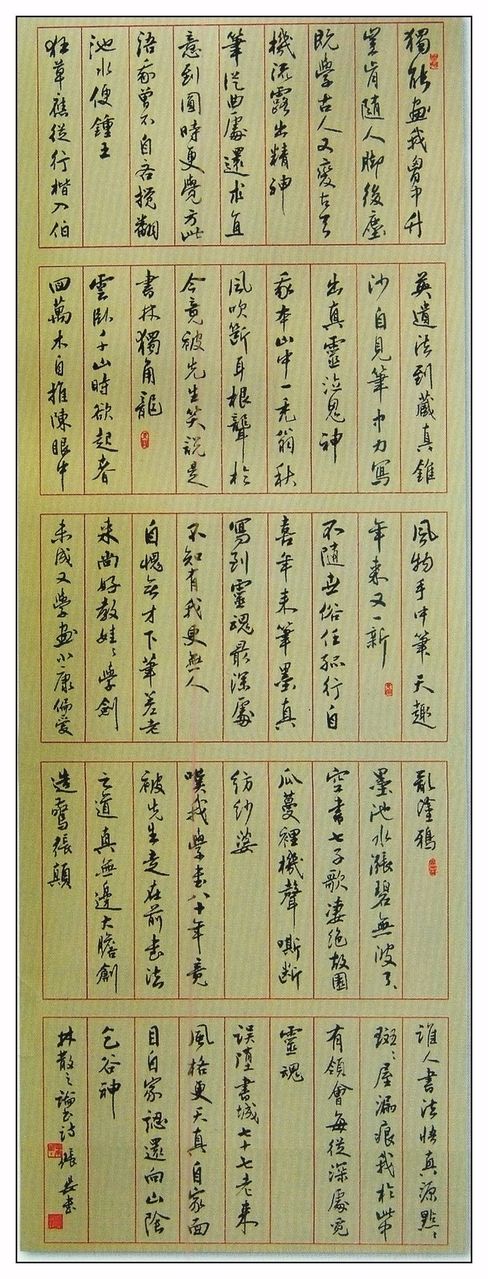 獨能畫我胸中竹
豈肯隨人脚後塵
既學古人又變古天
機流露出精神
筆從曲處還求直
意到圓時更覺方此
語我曾不自吝攪翻
池水便鍾王
狂草應從行楷入伯
英遺法到藏真錐
沙自見筆中力寫
出真靈泣鬼神
我本山中一禿翁秋
風吹斷耳根聾於
今竟被先生笑說是
書林獨角龍
雲臥千山時欲起者
回萬木自推陳眼中
風物手中筆天趣
年來又一新
不隨世俗任孤行自
喜年來筆墨真
寫到靈魂最深處
不知有我更無人
自愧無才下筆差老
來尚好教娃娃學劍
未成又學畫小康偏愛
亂塗鴉
墨池水漲碧無波了了
空書七子歌凄絕故園
瓜蔓裡機聲嘶斷
紡紗婆
嘆我學書八十年竟
被先生走在前書法
之道真無邊大膽創
造驚張顛
誰人書法悟真源點點
斑斑屋漏痕我於此中
有領會每從深處覓
靈魂
誤墮書城七十七老來
風格更天真自家面
目自家認還向山陰
乞谷神
林散之論書詩張書